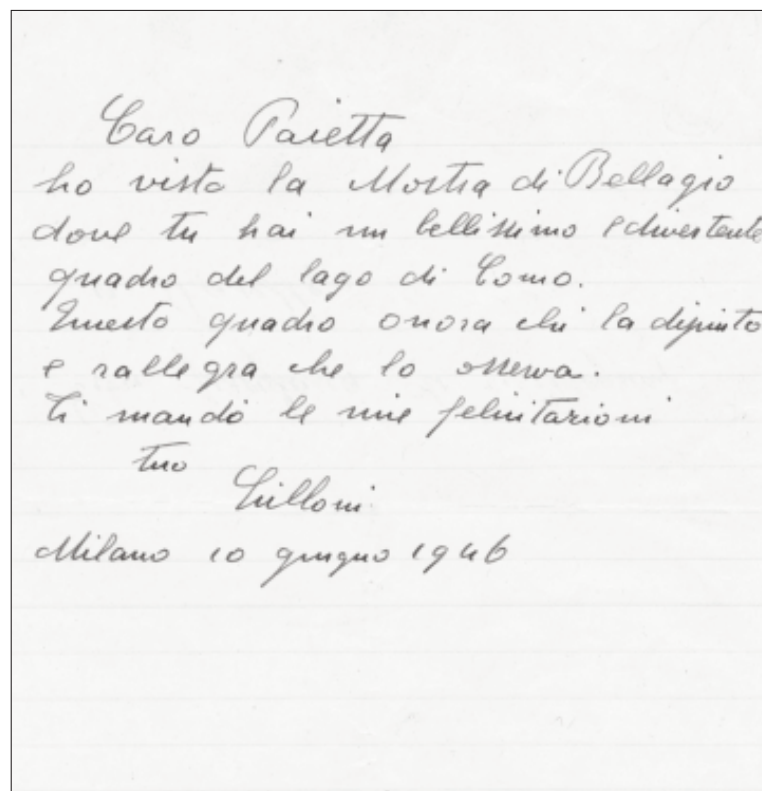 Caro Paietta
ho visto la Mostra di Bellagio
dove tu hai un bellissimo e divertente
quadro del lago di Como.
Questo quadro onora chi la dipinto
e rallegra che lo osserva.
Ti mando le mie felicitazioni
tuo
Lilloni
Milano 10 giugno 1946